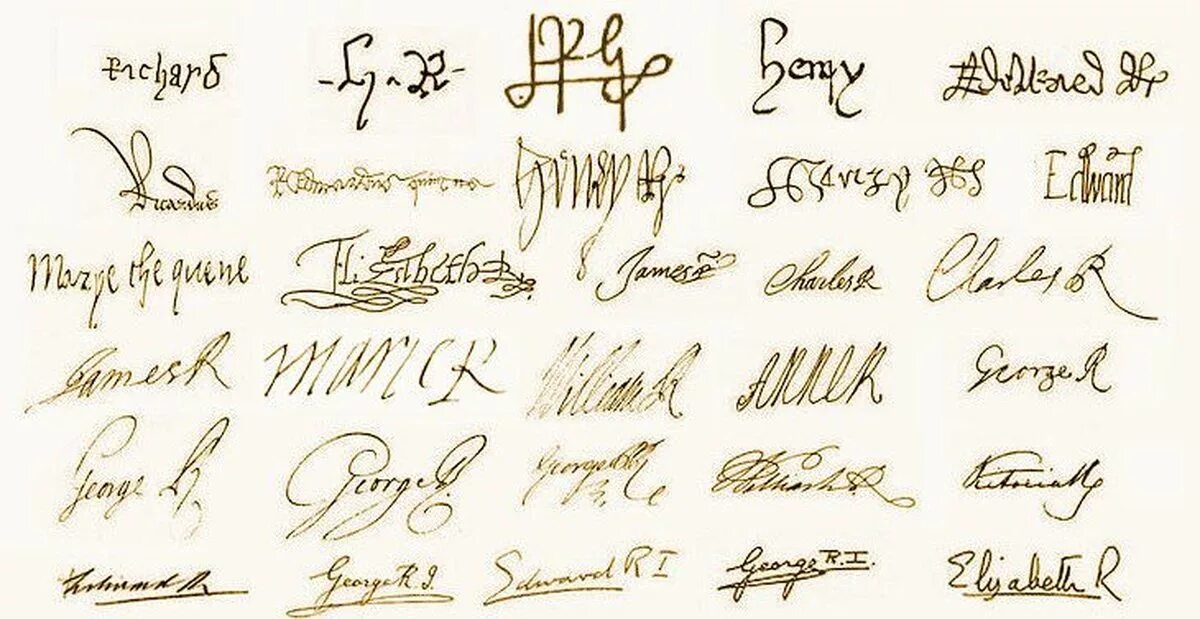 Richard - H R - HRG Henry Edward R
Ricardus R Edwardus quintus Henry R Henry R Edward
Marye the quene Elizabeth R James R Charles R Charles R
James R Marie R William R ANNE R George R
George R George R George R William R Victoria R
Edward R George R I Edward R I George R.I. Elizabeth R